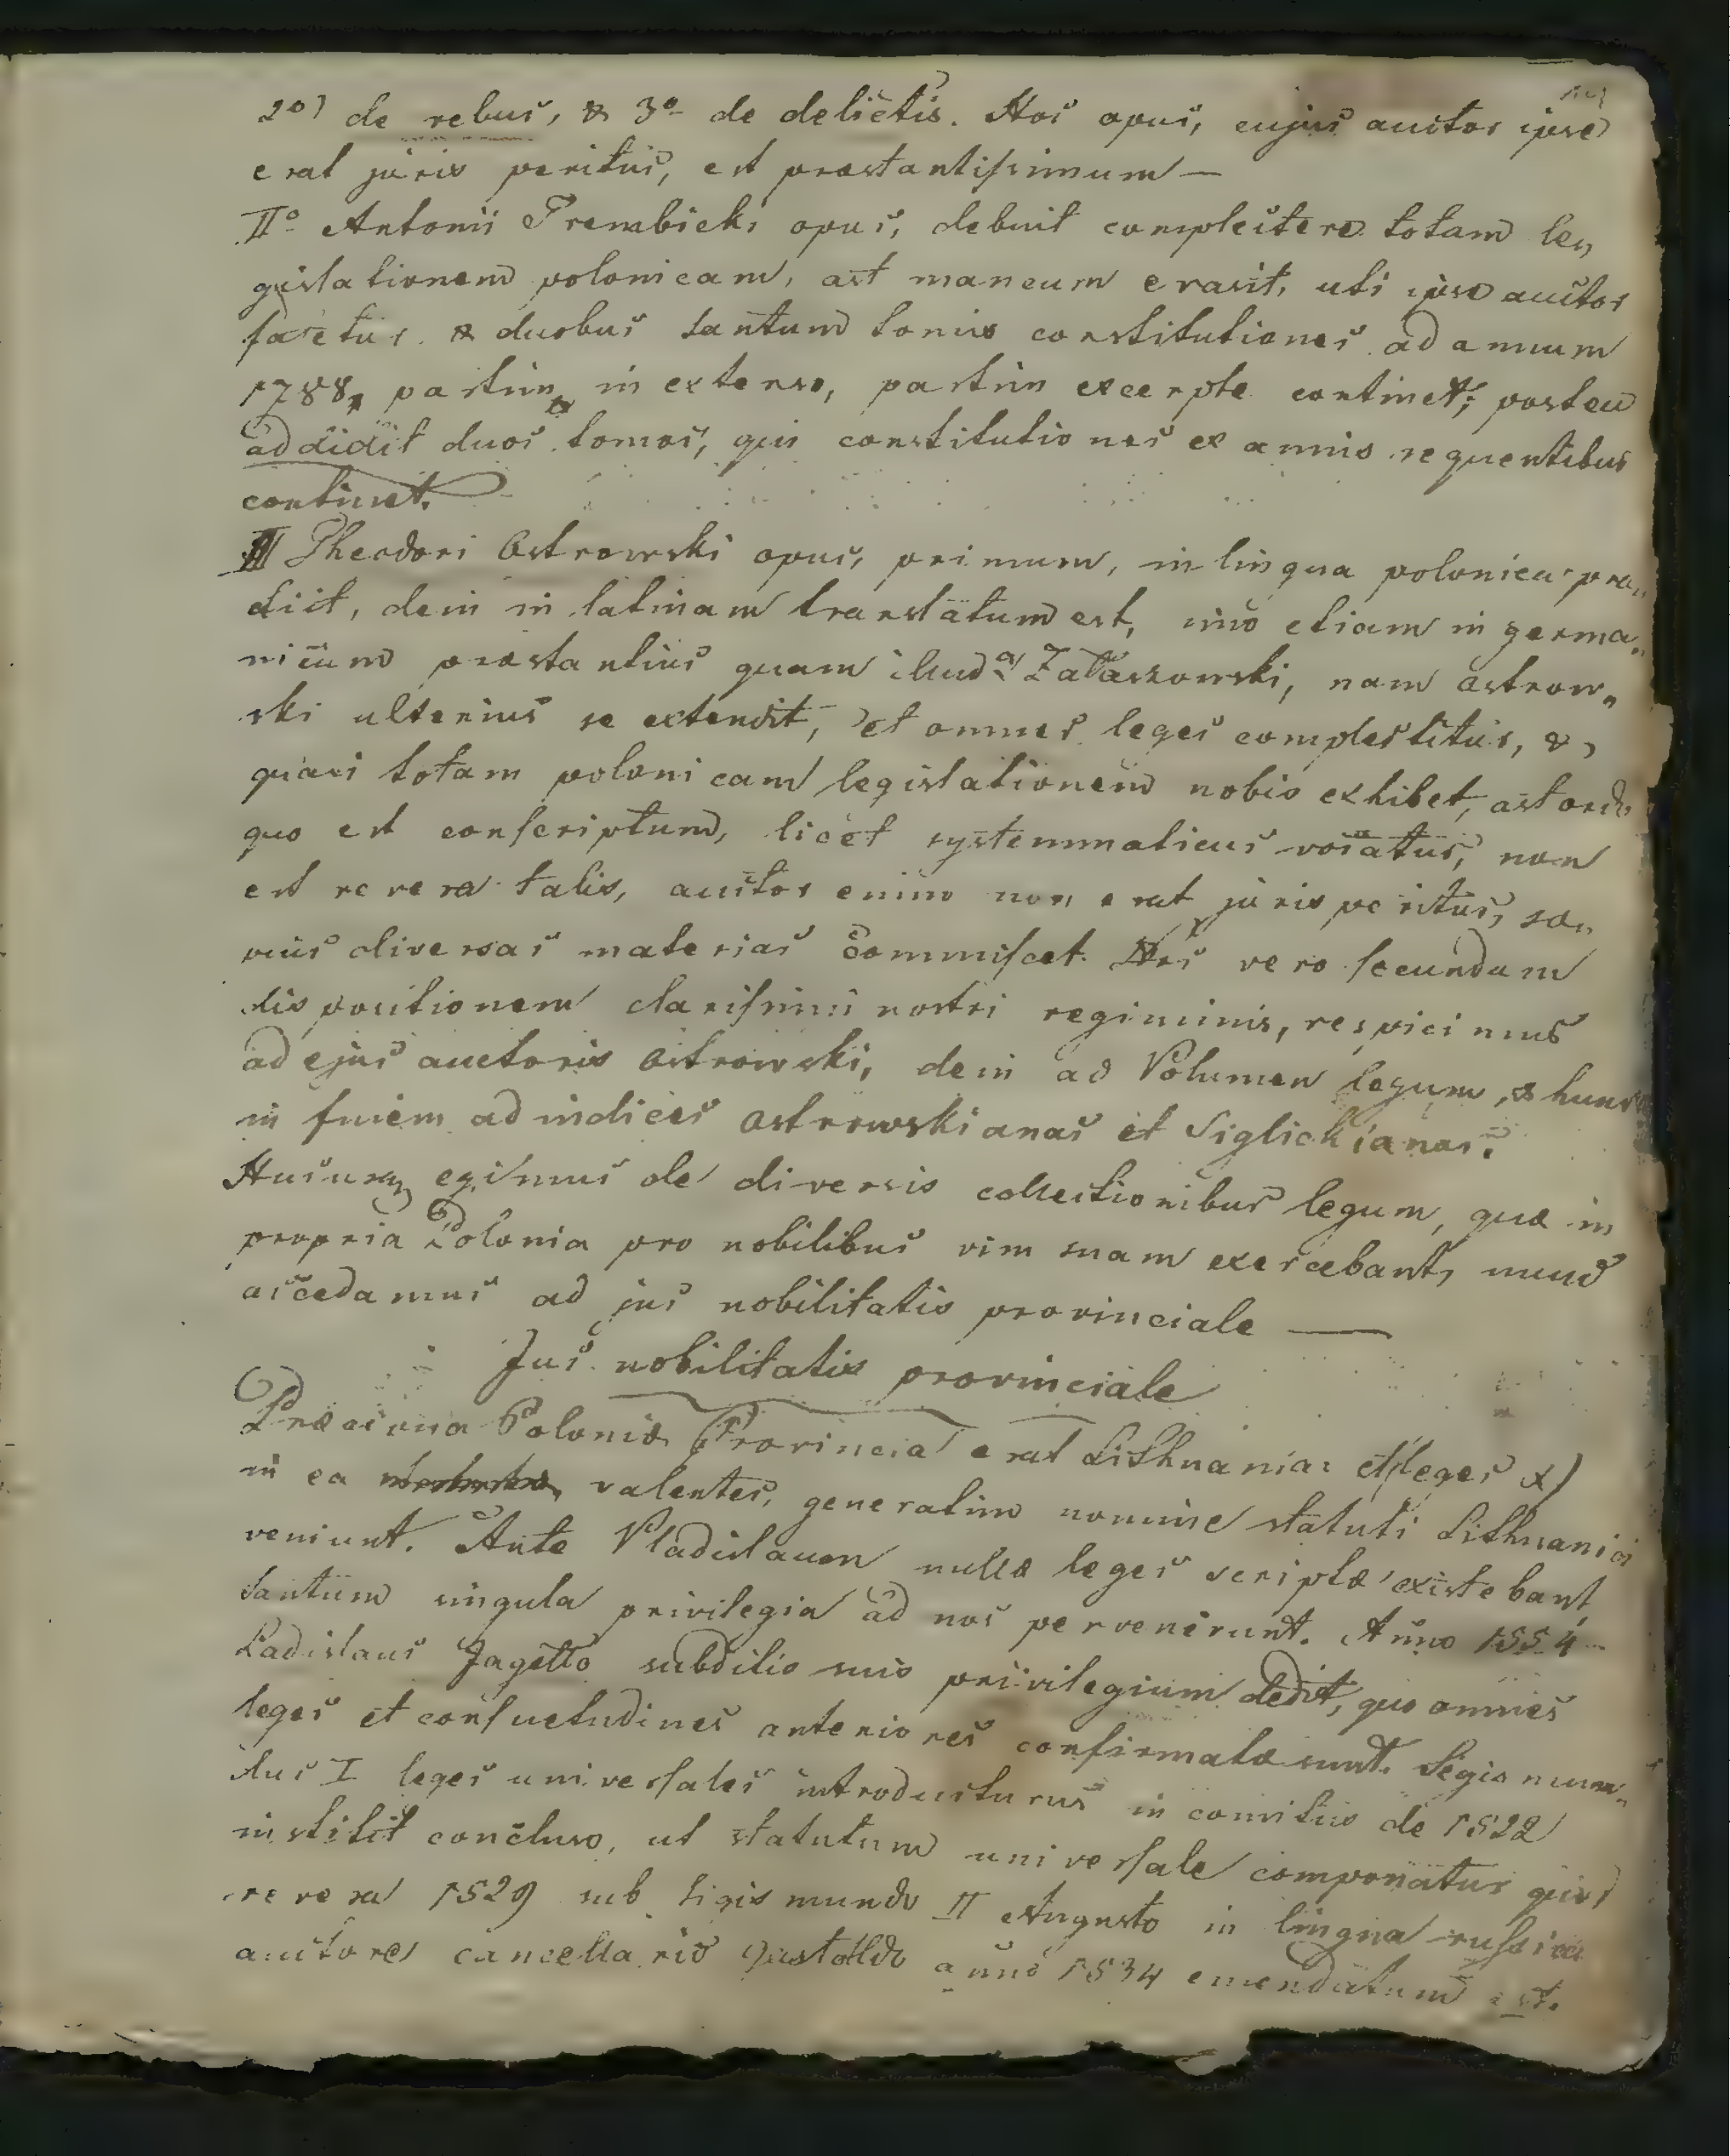 2o) de rebus, & 3o de delictis. Hoc opus, cujus auctor ipse
erat juris peritus, est præstantissimum —
IIo Antonii Trembicki opus, debuit complectere totam le„
gislationem polonicam, ast mancum evasit, uti ipse auctor
fatetur & duobus tantum tomis constitutiones ad annum
1788, partim in extenso, partim excerpte continet; postea
addidit duos tomos, qui constitutiones ex annis sequentibus
continet.
III Theodori Ostrowski opus, primum, in lingua polonica pro„
diit, dein in latinam translatum est, imo etiam in germa„
nicum præstantius quam illud a Zalaszowski, nam Ostrow„
ski ulterius se extendit, et omnes leges complectitur, &
quasi totam polonicam legislationem nobis exhibet, ast ordo
quo est conscriptum, licet systemmaticus vocatus, non
est revera talis, auctor enim non erat juris peritus, sæ„
pius diversas materias commiscet. Nos vero secundum
dispositionem clarissimi nostri regiminis, respicimus
ad ejus auctoris Ostrowski, dein ad Volumen legum, & hunc
in finem ad indices Ostrowskianas et Siglickianas.
Hucusq egimus de diversis collectionibus legum, quæ in
propria Polonia pro nobilibus vim suam exercebant, nunc
accedamus ad jus nobilitatis provinciale —
Jus nobilitatis provinciale
Præcipua Poloniæ Provincia erat Lithuania: et leges x)
in ea valentes, generatim nomine statuti Lithuanici
veniunt. Ante Vladislaum nullæ leges scriptæ existebant,
tantum singula privilegia ad nos pervenerunt. Anno 1554
Ladislaus Jagello subditis suis privilegium dedit, quo omnes
leges et consuetudines anteriores confirmatæ sunt. Sigismun„
dus I leges universales introducturus in comitiis de 1522
institit concluso, ut statutum universale componatur quod
revera 1529 sub Sigismundo II Augusto in lingua russica
auctore cancellario Gastoldo anno 1534 emendatum est.